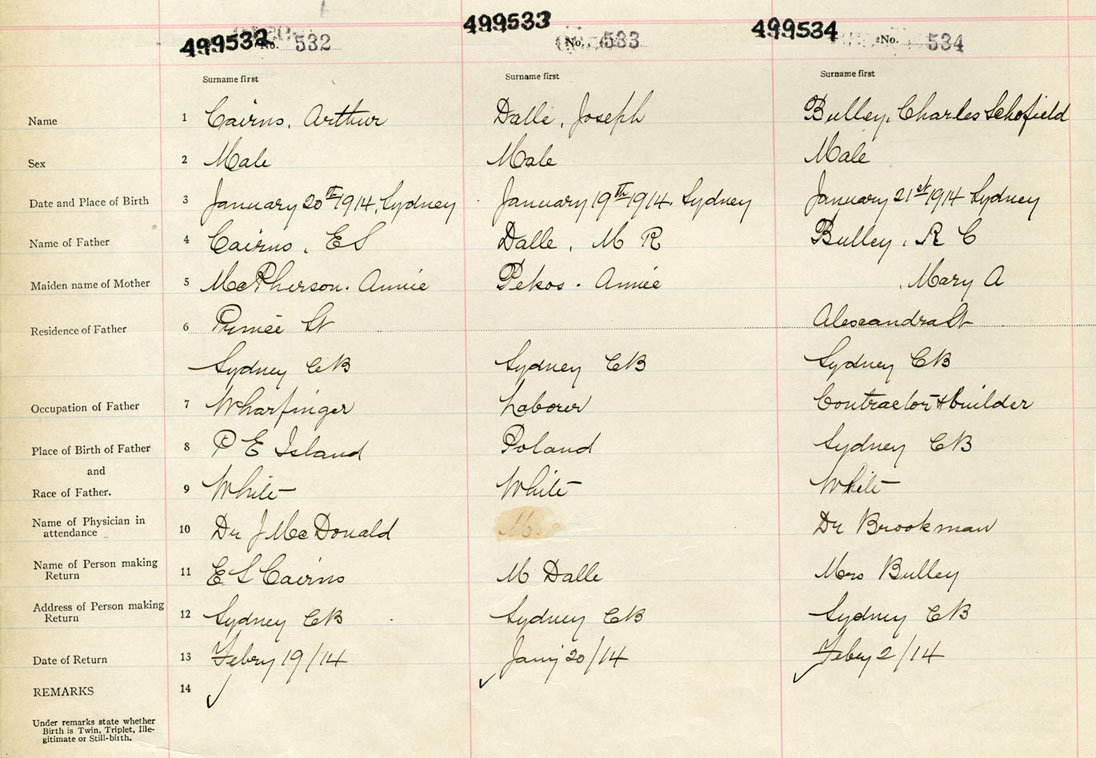 499532 No. 532 499533 No. 533 499534 No. 534
Surname first Surname first Surname first
Name 1 Cairns, Arthur Dalle, Joseph Bulley, Charles Schofield
Sex 2 Male Male Male
Date and Place of Birth 3 January 20th 1914, Sydney January 19th 1914. Sydney January 21st 1914 Sydney
Name of Father 4 Cairns, E S Dalle, M R Bulley, R C
Maiden name of Mother 5 McPherson. Annie Pekos. Annie , Mary A
Residence of Father 6 St Alexandra St
Sydney CB Sydney CB Sydney CB
Occupation of Father 7 Wharfinger Laborer Contractor & builder
Place of Birth of Father 8 P E Island Poland Sydney CB
and
Race of Father. 9 White White White
Name of Physician in
attendance 10 Dr J McDonald Dr Brookman
Name of Person making
Return 11 E S Cairns M Dalle Mrs Bulley
Address of Person making
Return 12 Sydney CB Sydney CB Sydney CB
Date of Return 13 Febry 19/14 Jany 20/14 Febry 2/14
REMARKS 14
Under remarks state whether
Birth is Twin, Triplet, Ille-
gitimate or Still-birth.